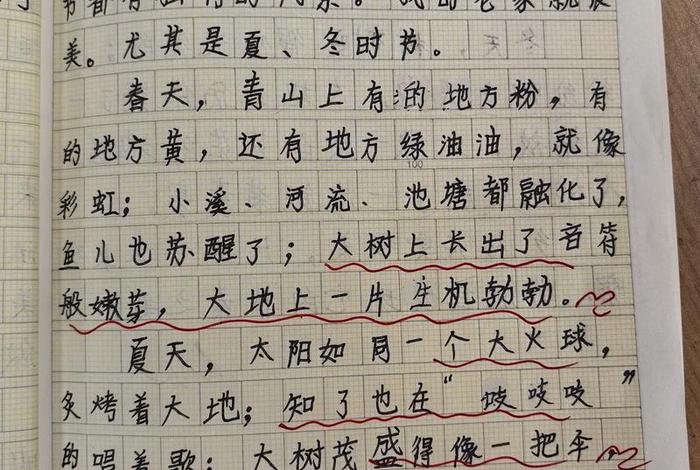 节都有
美。尤其是夏、冬时节。
春天，青山上有的地方粉，有
的地方黄，还有地方绿油油，就像
100
彩虹；小溪、河流、池塘都融化了，
鱼儿也苏醒了；大树上长出了音符
般嫩芽，大地上一片生机勃勃。
夏天，太阳如同一个大火球，
炙烤着大地；知了也在“吱吱吱”
的唱着歌；大树茂盛得像一把伞，